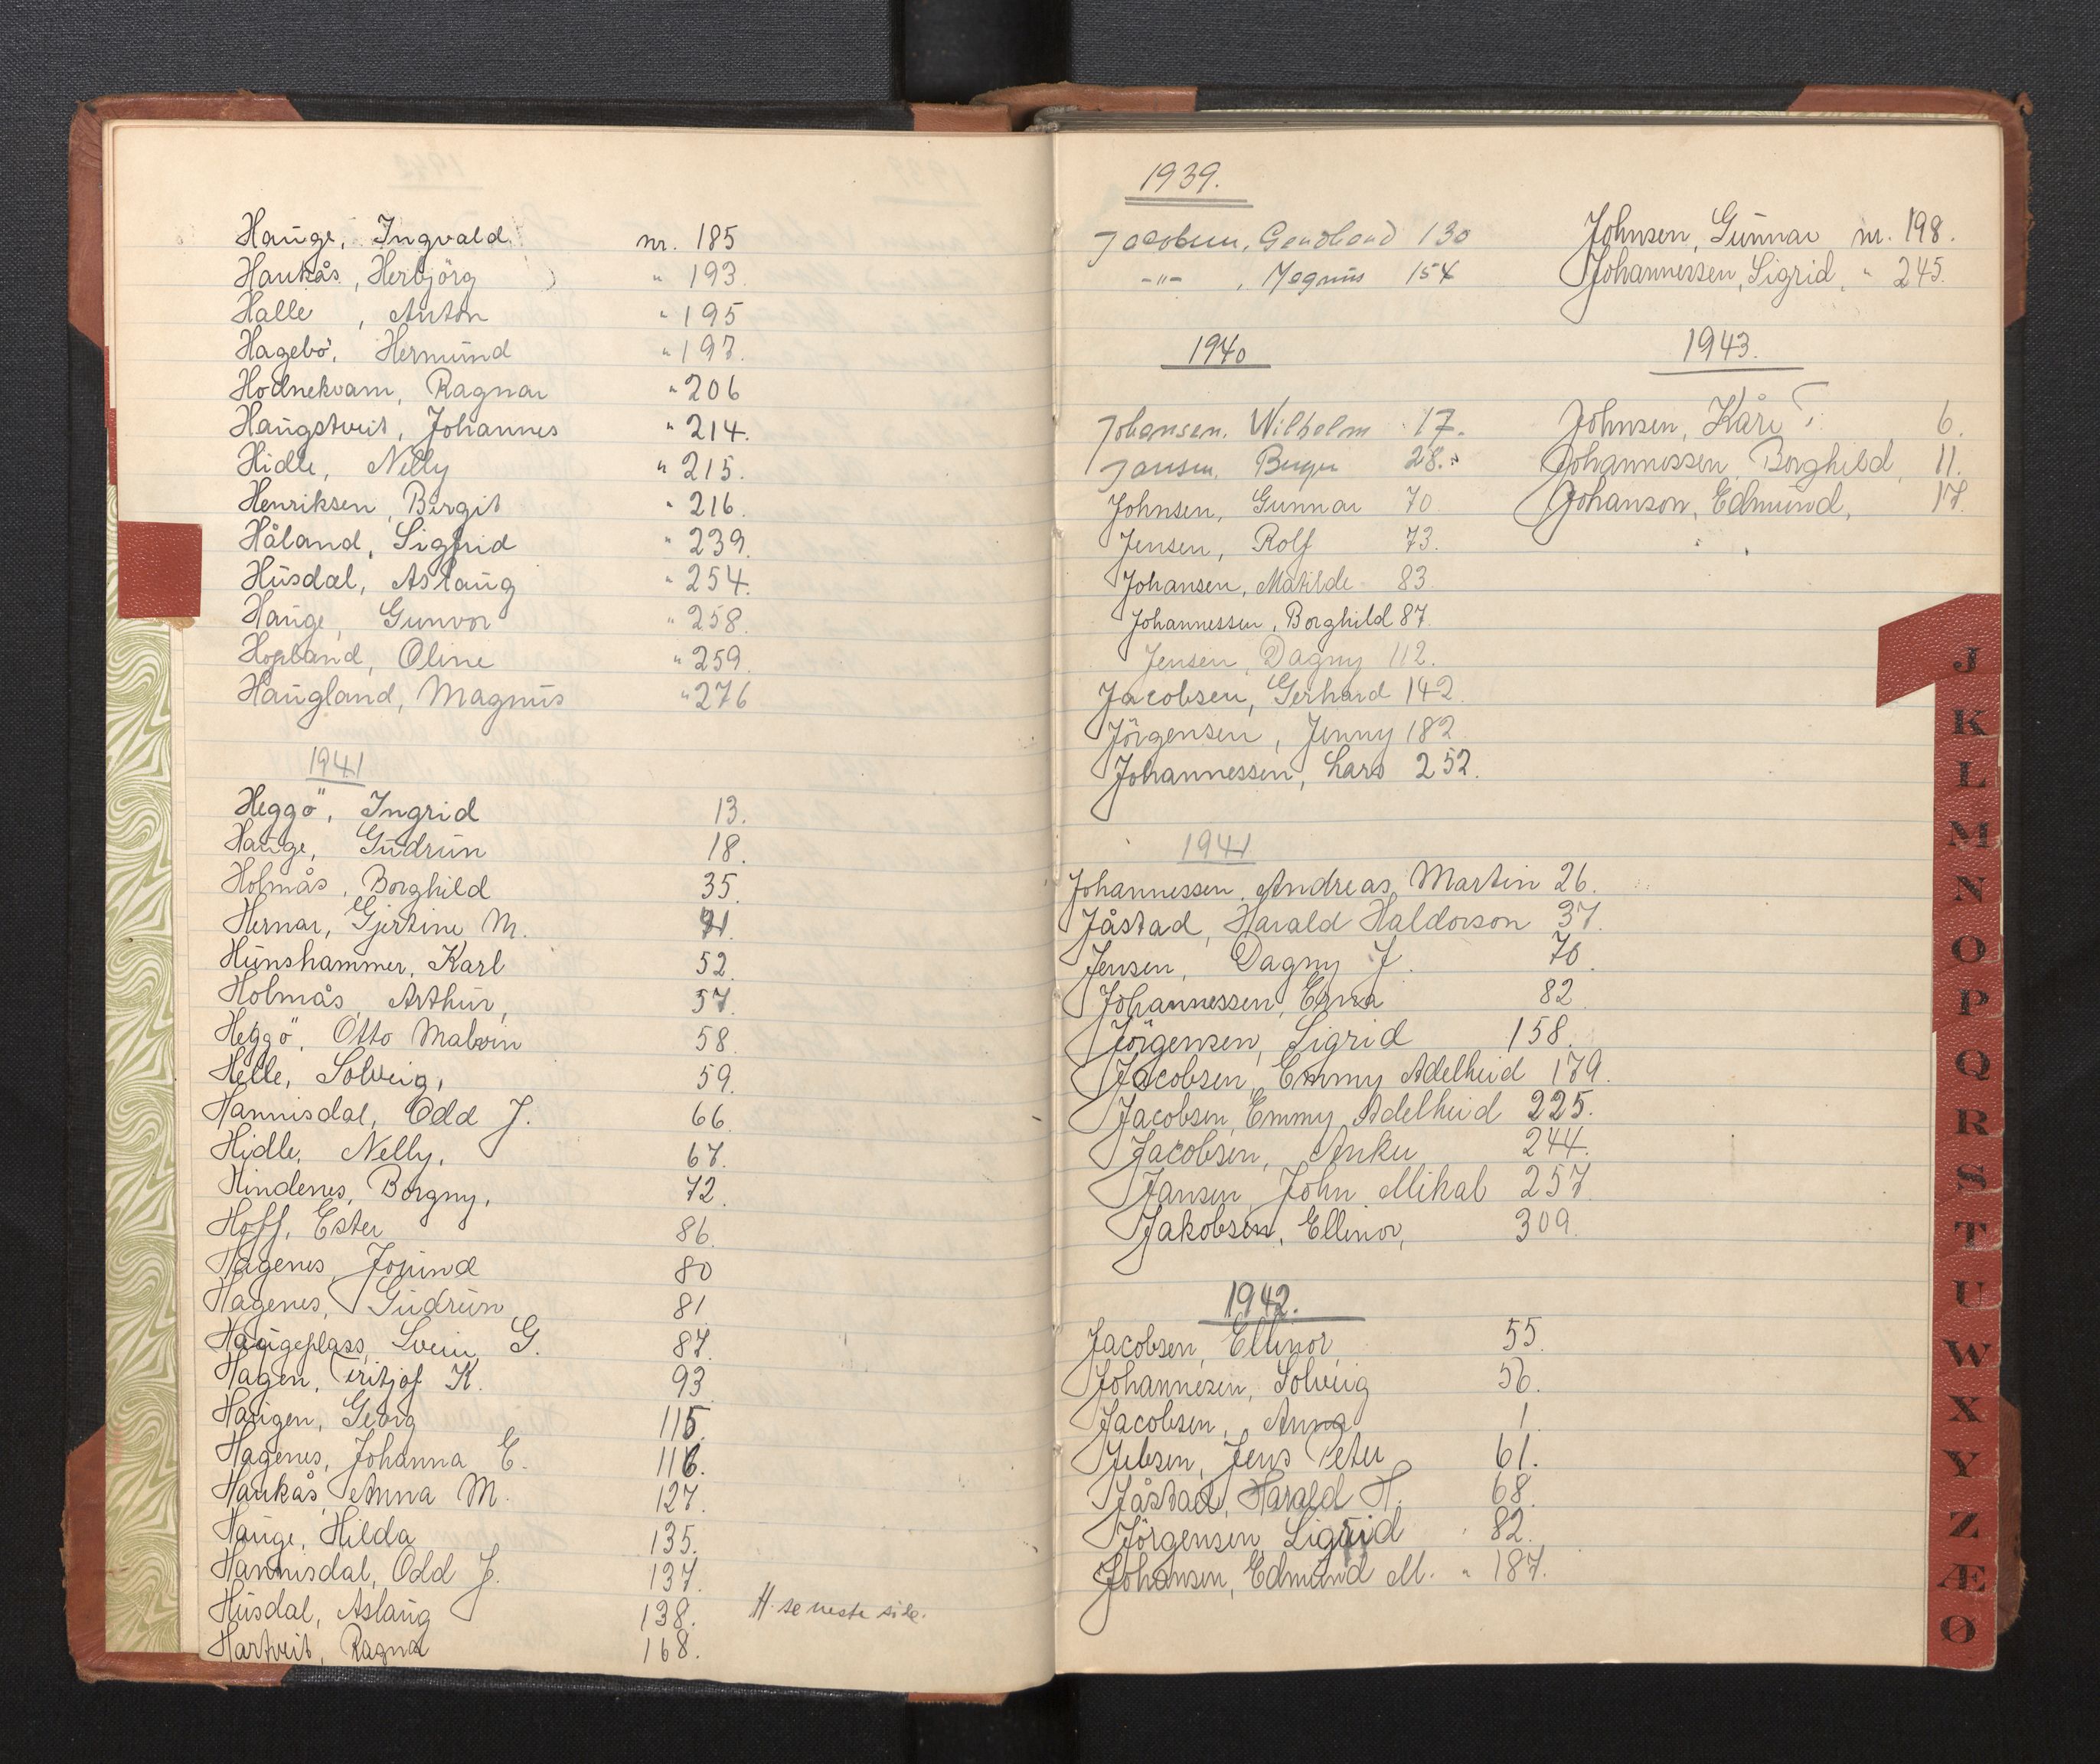 Hauge, Ingvald nr. 185
Haukås, Herbjörg " 193.
Halle, Anton " 195
Hagebö, Hermund " 197.
Hodnekvam, Ragnar " 206
Haugstveit, Johannes " 214.
Hidle, Nelly " 215.
Henriksen, Birgit " 216.
Håland, Sigfrid " 239.
Husdal, Aslaug " 254.
Hauge, Gunvor " 258.
Hopland, Oline " 259.
Haugland, Magnus " 276
1941
Heggö, Ingrid 13.
Hauge, Gudrun 18.
Holmås, Borghild 35.
Hernar, Gjertine M.
Hunshammer, Karl 52.
Holmås, Arthur, 57.
Heggö, Otto Malvin 58.
Helle, Solveig, 59.
Hannisdal, Odd J. 66.
Hidle, Nelly, 67.
Hindenes, Borgny, 72.
Hoff, Ester 86.
Hagenes, Josund 80
Hagenes, Gudrun 81
Haugeplass, Svein G. 87.
Hagen, Fritjof K. 93
Haugen, Georg 115.
Hagenes, Johanna E. 116.
Haukås, Anna M. 127.
Hauge, Hilda 135.
Hannisdal, Odd J. 137.
Husdal, Aslaug 138.
Hartveit, Ragna 168.
H. se neste side.
1939.
Jacobsen, 130
-"-, Magnus 154
1940
Johansen, Wilhelm 17.
Jansen, Birger 28.
Johnsen, Gunnar 70
Jensen, Rolf 73.
Johansen, Matilde 83
Johannessen, Borghild 87.
Jensen, Dagny 112.
Jacobsen, Gerhard 142.
Jörgensen, Jenny 182
Johannessen, Lars 252.
1941
Johannessen, Andreas Martin 26.
Jåstad, Harald Haldorson 37.
Jensen, Dagny J. 70.
Johannessen, Erna 82
Jörgensen, Sigrid 158.
Jacobsen, Emmy Adelheid 179.
Jacobsen, Emmy Adelheid 225.
Jacobsen, Anku 244.
Jansen, John Mikal 257
Jakobsen, Ellinor, 309.
1942.
Jacobsen, Ellinor, 55.
Johannesen, Solveig 56.
Jacobsen, Anna 1
Jebsen, Jens Peter 61.
Jåstad, Harald H. 68.
Jörgensen, Sigrid 82.
Johansen, Edmund M. " 187.
Johnsen, Gunnar nr. 198.
Johannessen, Sigrid, " 245.
1943.
Johnsen, Kåre T. 6.
Johannessen, Borghild, 11.
Johanson, Edmund, 17.
J
K
L
M
N
O
P
Q
R
S
T
U
W
X
Y
Z
Æ
Ø